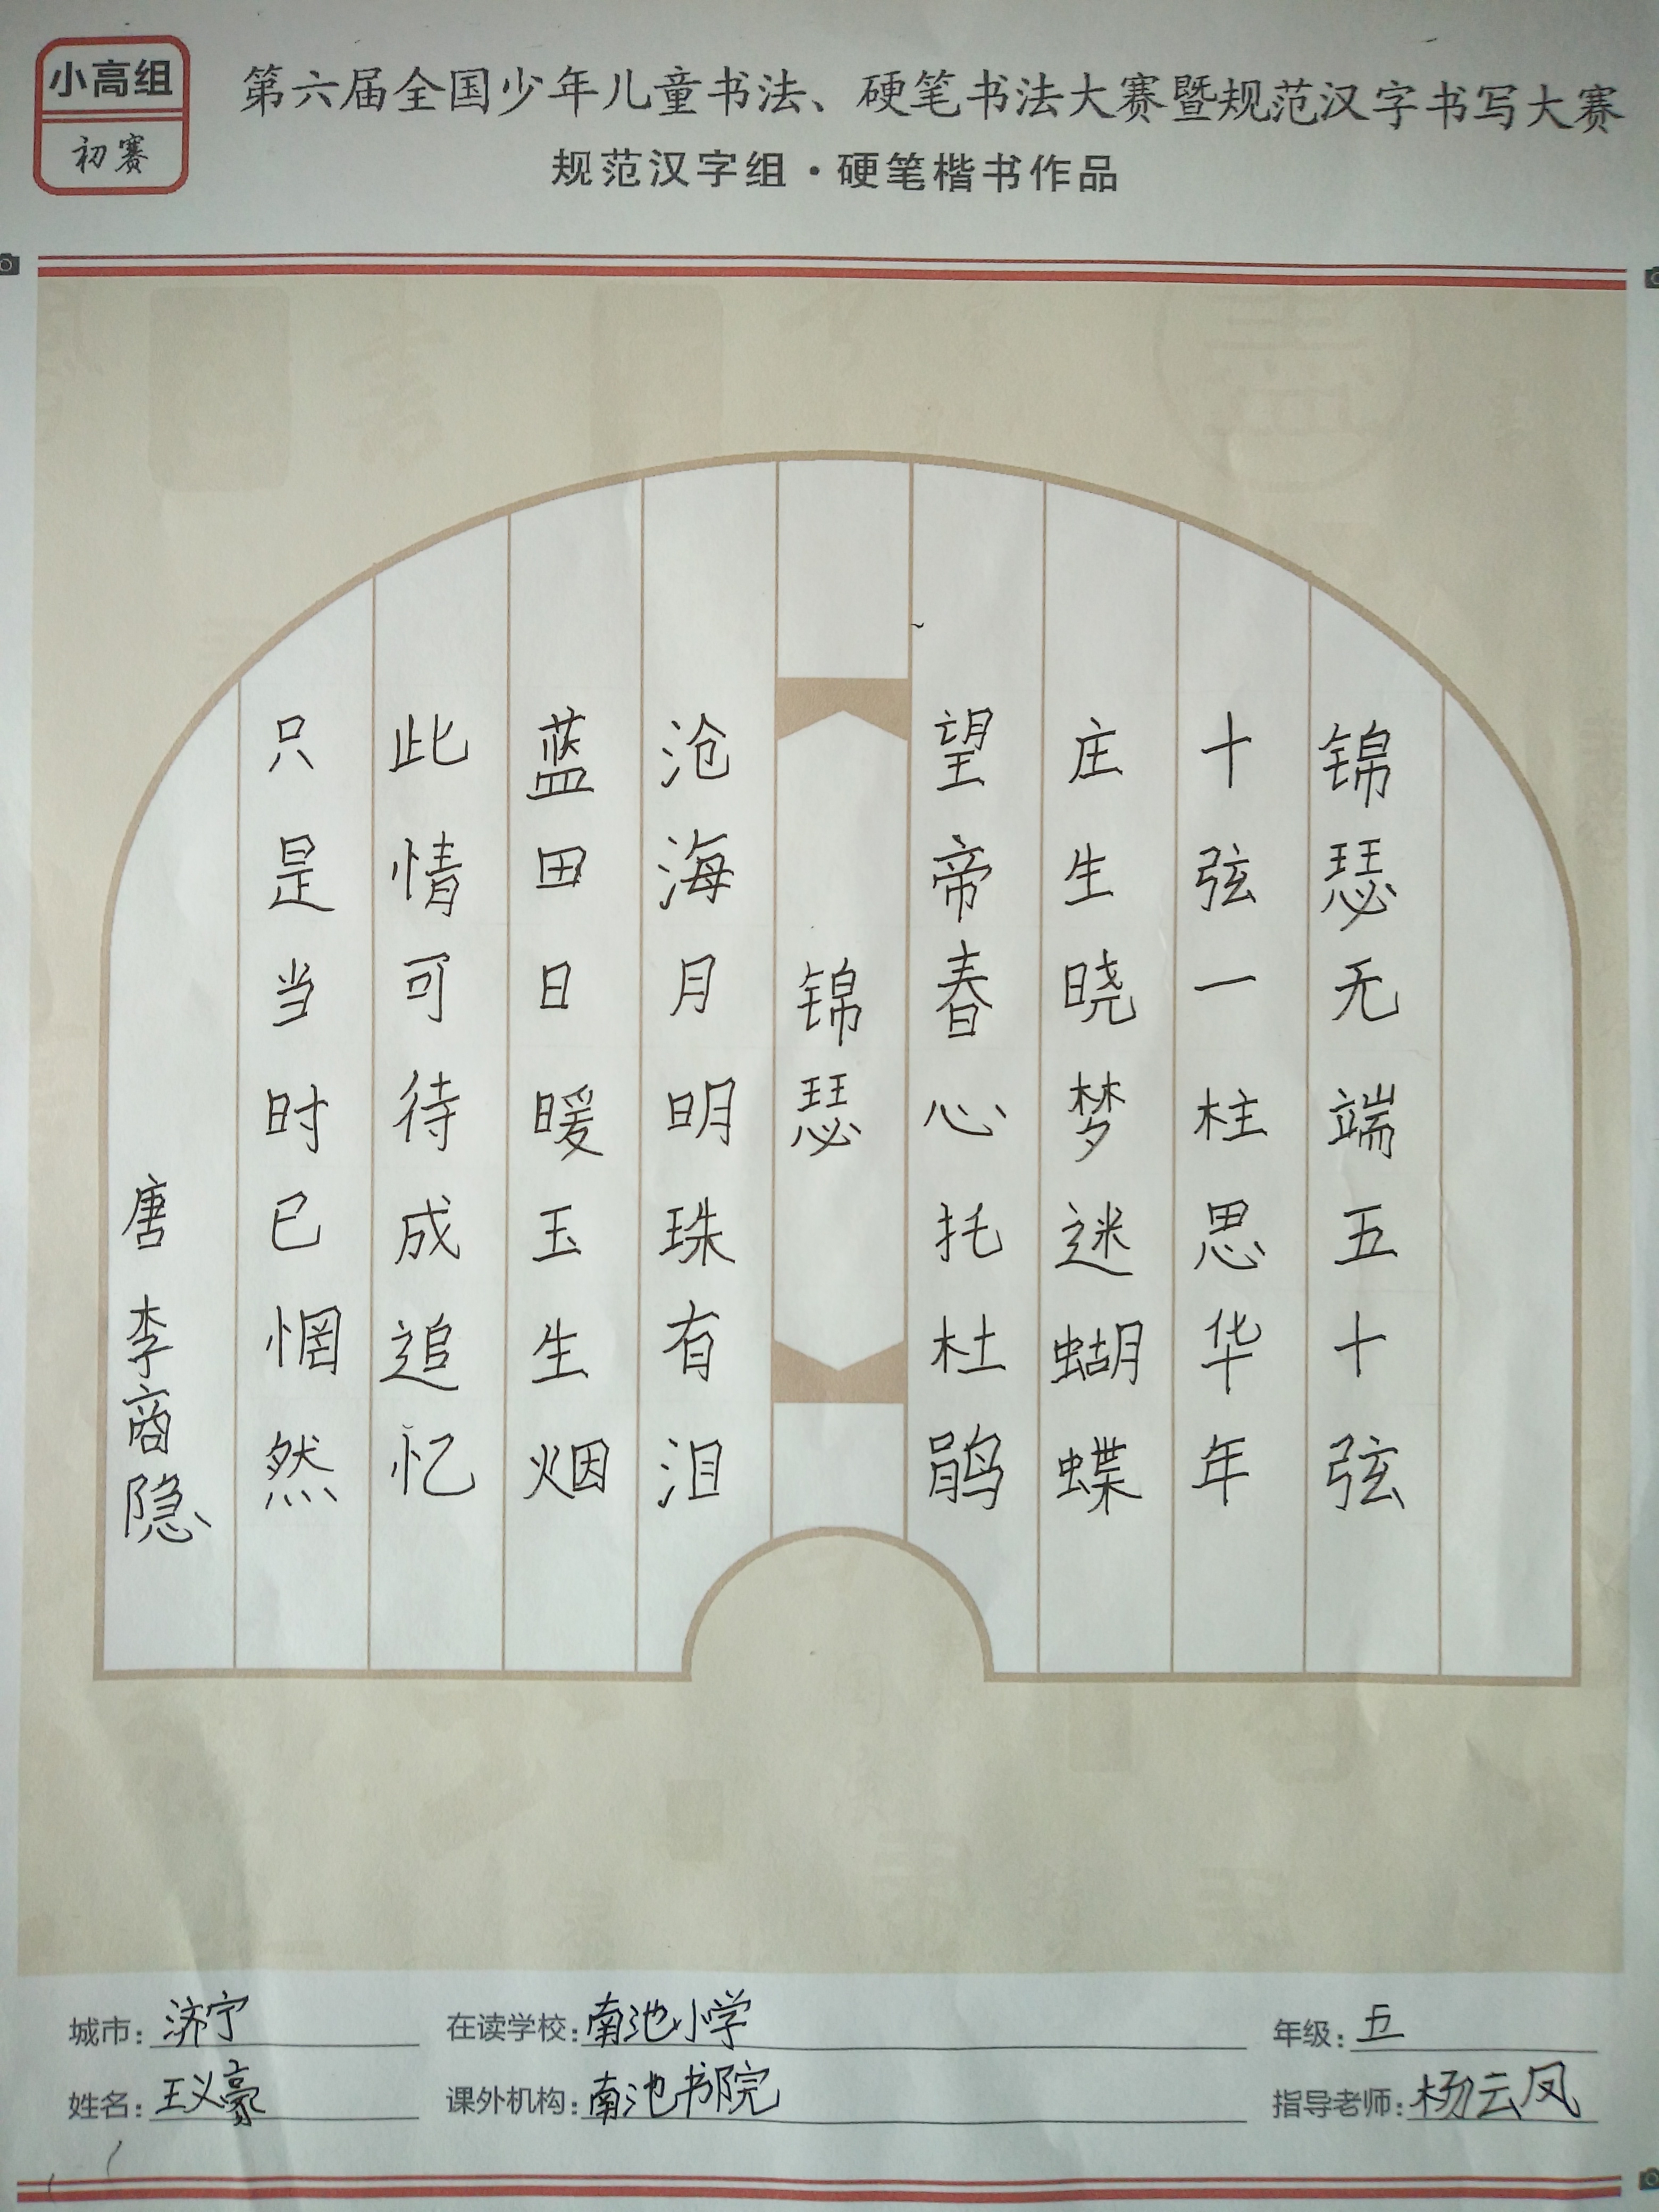 小高组
初赛
第六届全国少年儿童书法、硬笔书法大赛暨规范汉字书写大赛
规范汉字组·硬笔楷书作品
锦瑟无端五十弦
十弦一柱思华年
庄生晓梦迷蝴蝶
望帝春心托杜鹃
锦瑟
沧海月明珠有泪
蓝田日暖玉生烟
此情可待成追忆
只是当时已惘然
唐 李商隐
城市：济宁 在读学校：南池小学 年级：五
姓名：王义豪 课外机构：南池书院 指导老师：杨云凤